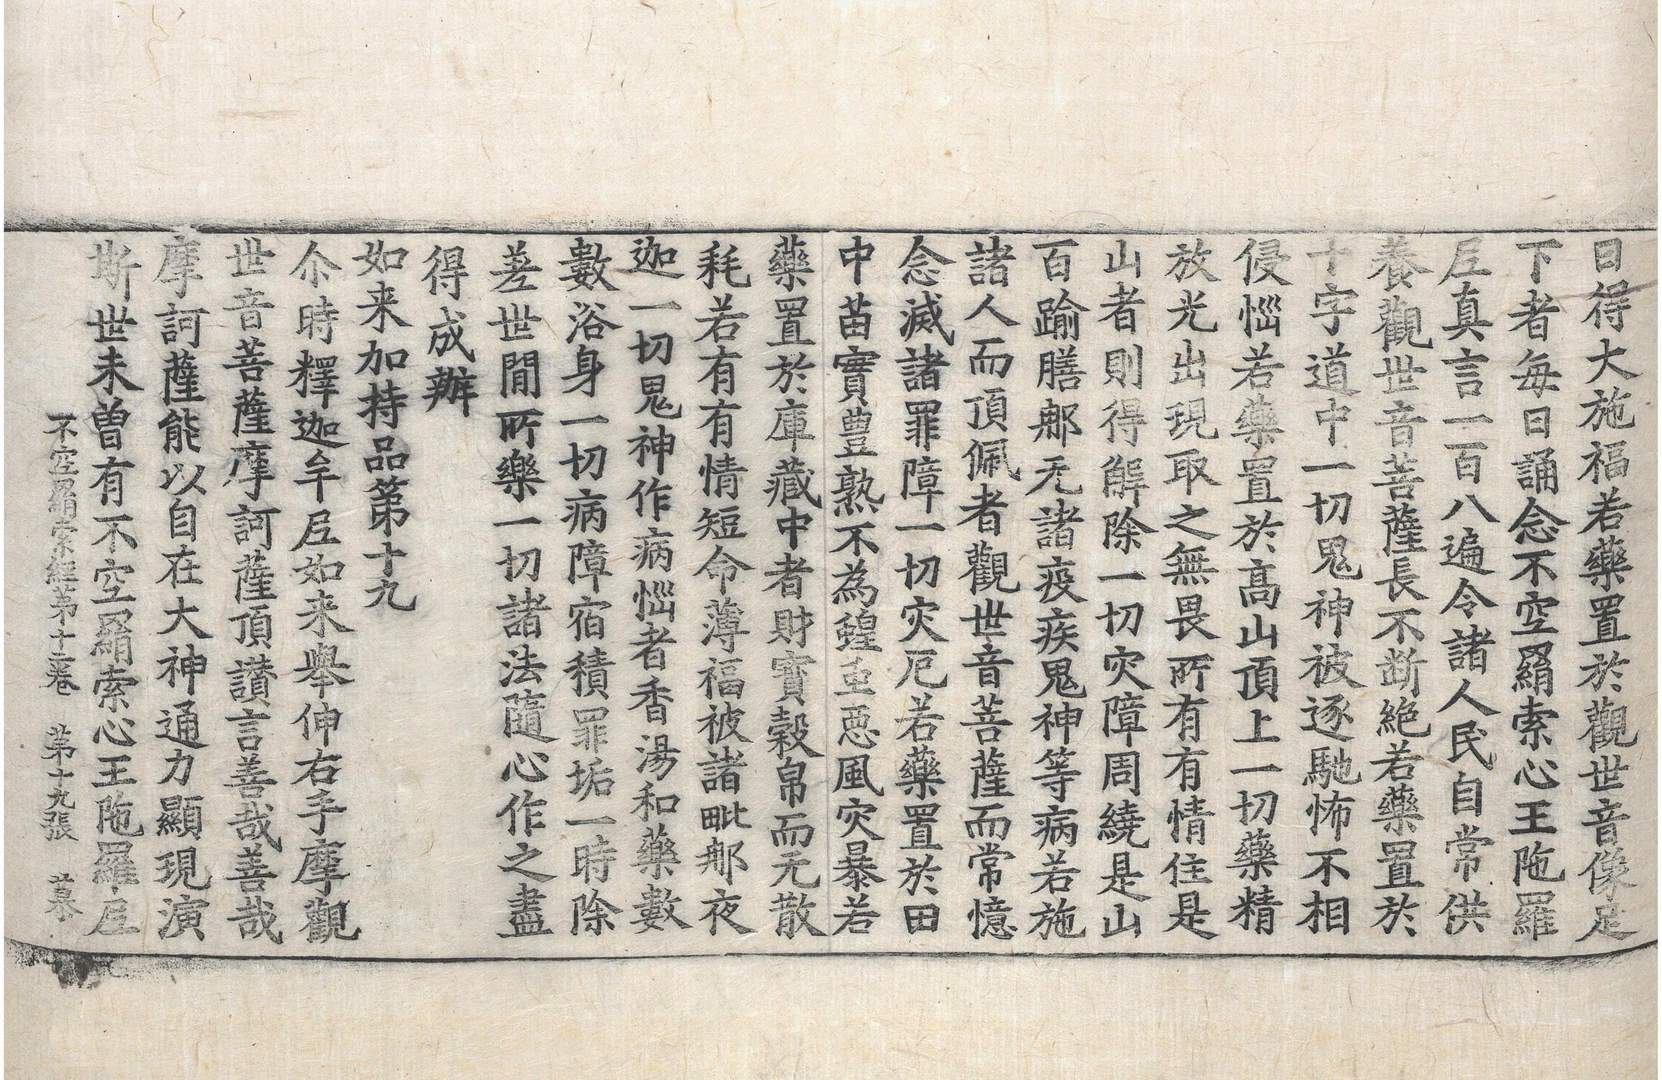 日得大施福若藥置於觀世音像足
下者每日誦念不空羂索心王陁羅
𡰱真言一百八遍令諸人民自常供
養觀世音菩薩長不断絶若藥置於
十字道中一切鬼神被逐馳怖不相
侵惱若藥置於髙山頂上一切藥精
放光出現取之無畏所有有情住是
山者則得解除一切灾障周繞是山
百踰膳𨚗无諸疫疾鬼神等病若施
諸人而頂佩者觀世音菩薩而常憶
念滅諸罪障一切灾厄若藥置於田
中苗實豊熟不為蝗䖝惡風灾暴若
藥置於庫藏中者財寳穀帛而无散
耗若有有情短命薄福被諸毗𨚗夜
迦一切鬼神作病惱者香湯和藥數
數浴身一切病障宿積罪垢一時除
差世間所樂一切諸法隨心作之盡
得成辦
如来加持品第十九
尒時釋迦牟𡰱如来舉伸右手摩觀
世音菩薩摩訶薩頂讃言善哉善哉
摩訶薩能以自在大神通力顯現演
斯世未曽有不空羂索心王陁羅𡰱
不空羂索經第十二卷 第十九張 慕